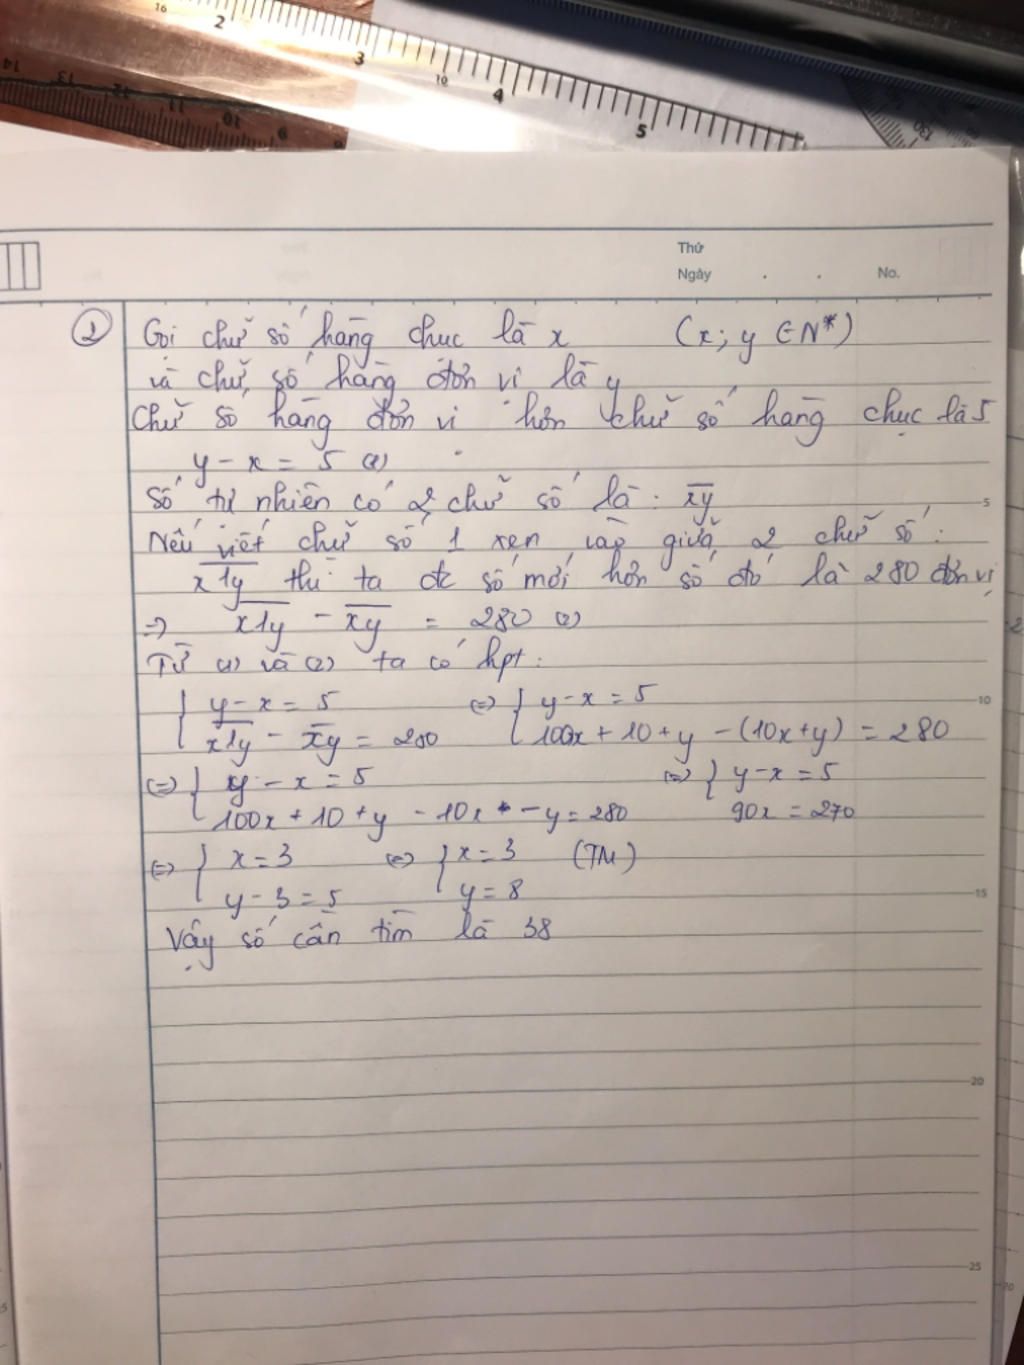 16 2 3 10 4 5
14 13 12 11 10 9
130
Thứ
Ngày . . No.
① Gọi chữ số hàng chục là x (x; y ∈ N*)
và chữ số hàng đơn vị là y
Chữ số hàng đơn vị hơn chữ số hàng chục là 5
y - x = 5 (1)
Số tự nhiên có 2 chữ số là : x̅y̅
5
Nếu viết chữ số 1 xen vào giữa 2 chữ số :
x̅1̅y̅ thì ta đc số mới hơn số đó là 280 đơn vị
=> x̅1̅y̅ - x̅y̅ = 280 (2)
Từ (1) và (2) ta có hpt :
{ y - x = 5 (=) { y - x = 5
10
x̅1̅y̅ - x̅y̅ = 280 100x + 10 + y - (10x + y) = 280
(=) { y - x = 5 (=) { y - x = 5
100x + 10 + y - 10x - y = 280 90x = 270
(=) { x = 3 (=) { x = 3 (TM)
y - 3 = 5 y = 8
15
Vậy số cần tìm là 38
20
25